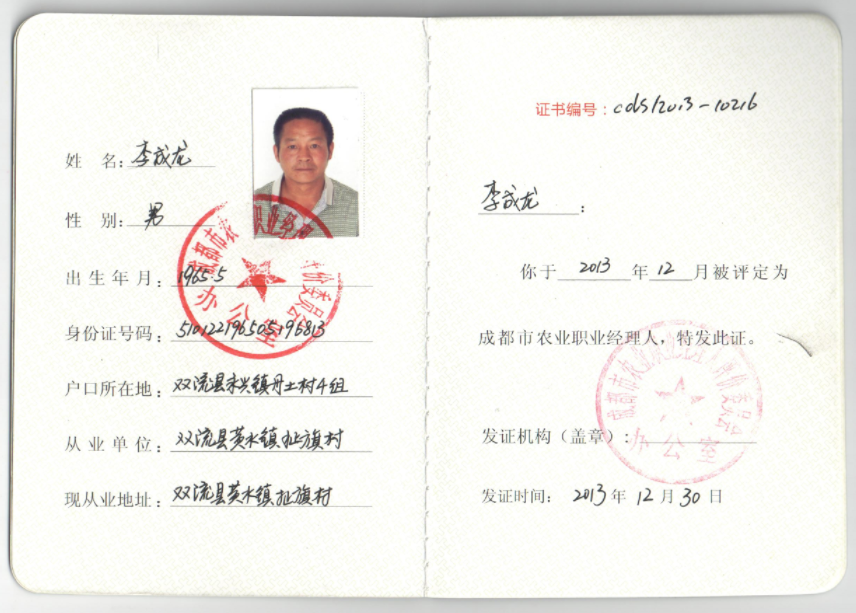 姓 名：李成龙
性 别：男
出生年月：1965.5
身份证号码：510122196505196813
户口所在地：双流县永兴镇丹土村4组
从业单位：双流县黄水镇扯旗村
现从业地址：双流县黄水镇扯旗村
成都市农业职业经理
办公室
证书编号：cds12013-10216
李成龙：
你于2013年12月被评定为
成都市农业职业经理人，特发此证。
发证机构（盖章）：
发证时间：2013年12月30日
办公室